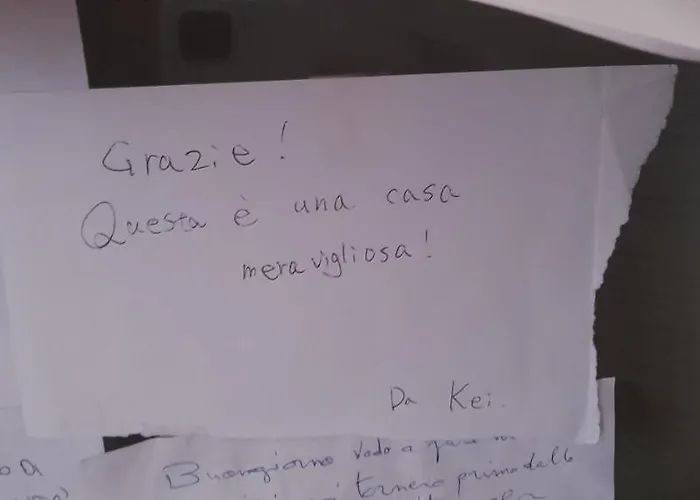 Grazie!
Questa è una casa
meravigliosa!
Da Kei.
Buongiorno Vado a
tornerò prima delle